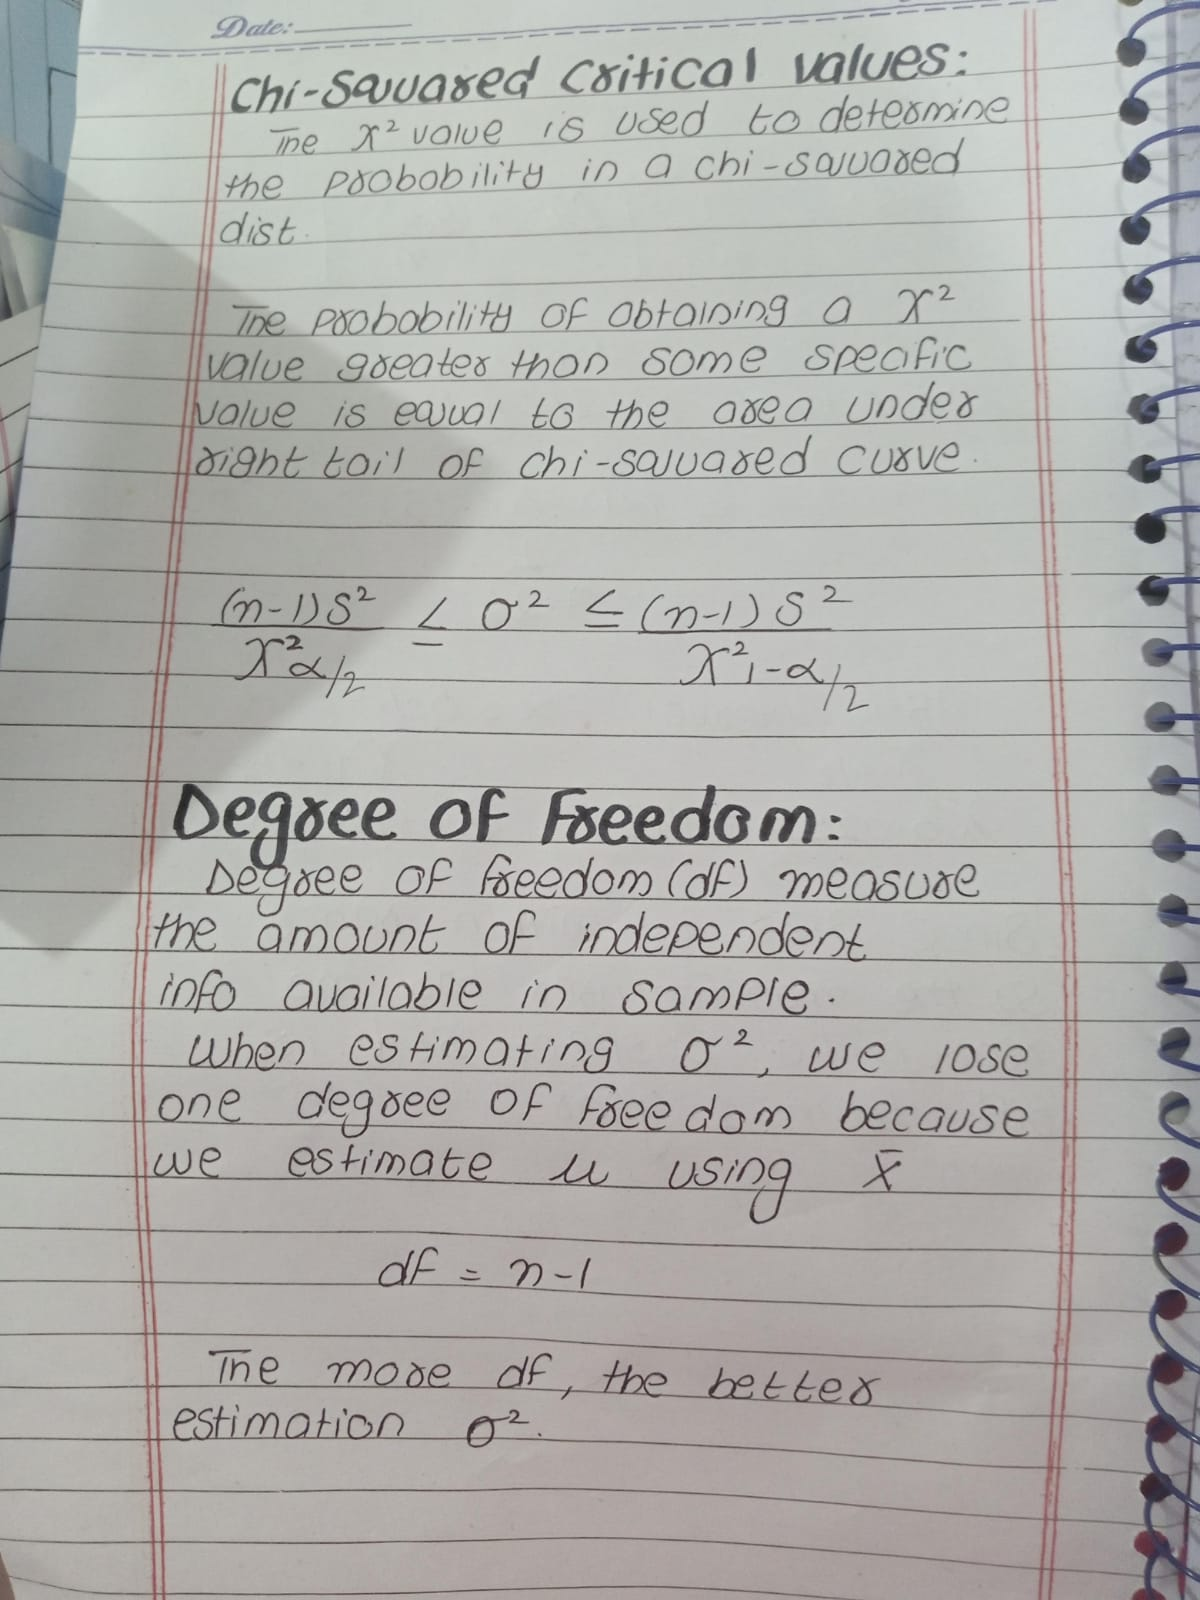 Date:
Chi-Squared Critical values:
The χ² value is used to determine
the probability in a chi-squared
dist.
The probability of obtaining a χ²
value greater than some specific
value is equal to the area under
right tail of chi-squared curve.
(n-1)S² / χ²α/2 ≤ σ² ≤ (n-1)S² / χ²1-α/2
Degree of Freedom:
Degree of freedom (df) measure
the amount of independent
info available in sample.
When estimating σ², we lose
one degree of freedom because
we estimate μ using x̄
df = n-1
The more df, the better
estimation σ².